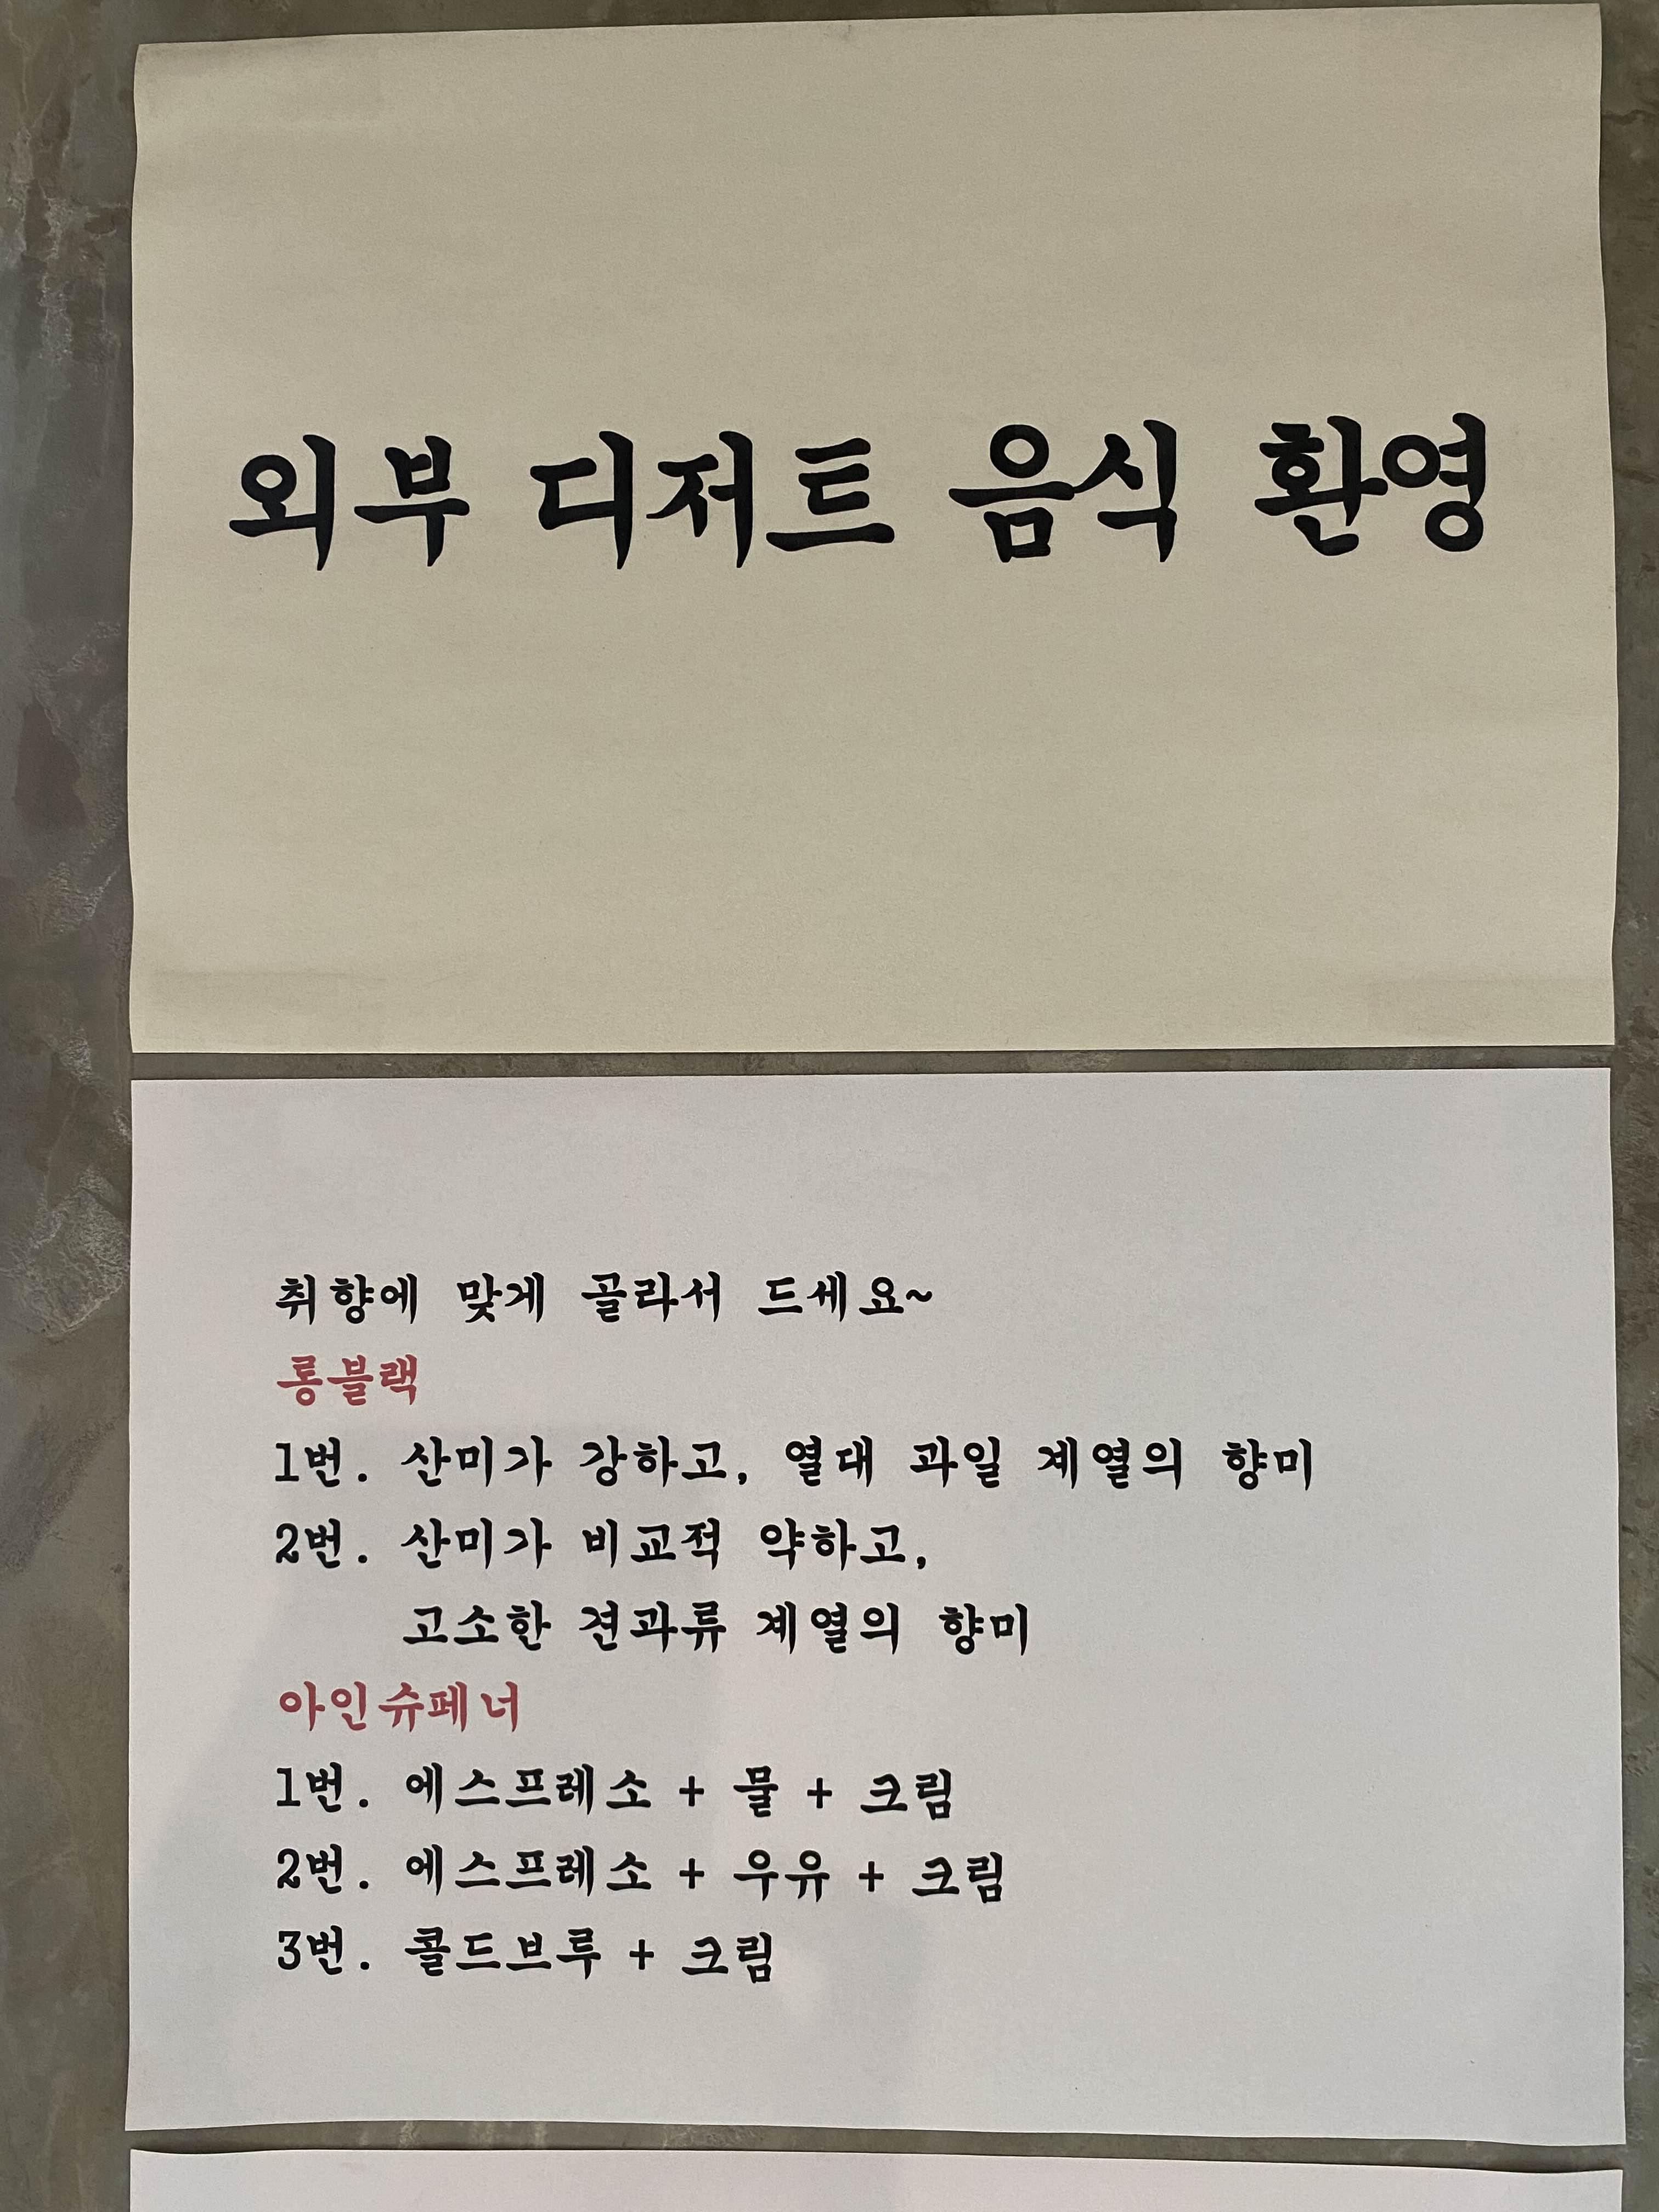 외부 디저트 음식 환영
취향에 맞게 골라서 드세요~
롱블랙
1번. 산미가 강하고, 열대 과일 계열의 향미
2번. 산미가 비교적 약하고,
고소한 견과류 계열의 향미
아인슈페너
1번. 에스프레소 + 물 + 크림
2번. 에스프레소 + 우유 + 크림
3번. 콜드브루 + 크림